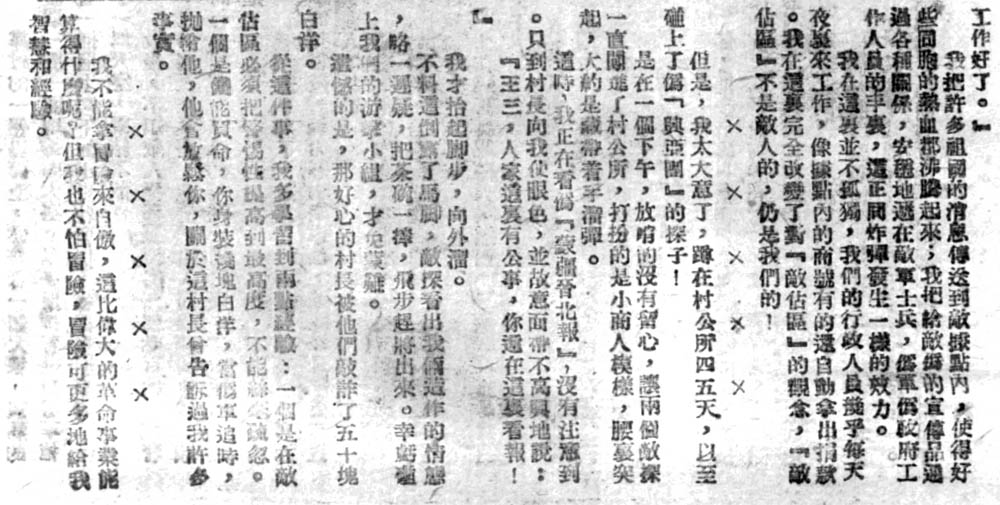 工作好了。
我把許多祖國的消息傳送到敵據點內，使得好
些同胞的熱血都沸騰起來，我把給敵僞的宣傳品通
過各種關係，安穩地遞在敵軍士兵，僞軍僞政府工
作人員的手裏，這正同炸彈發生一樣的效力。
我在這裏並不孤獨，我們的行政人員幾乎每天
夜裏來工作，像據點內的商號有的還自動拿出捐款
。我在這裏完全改變了對『敵佔區』的觀念，『敵
佔區』不是敵人的，仍是我們的！
× × × × ×
但是，我太大意了，蹲在村公所四五天，以至
碰上了僞『興亞團』的探子！
是在一個下午，放哨的沒有留心，讓兩個敵探
一直闖進了村公所，打扮的是小商人模樣，腰裏突
起，大約是藏帶着手溜彈。
這時，我正在看僞『蒙疆晉北報』，沒有注意到
。只到村長向我使眼色，並故意面帶不高興地說：
『王三，人家這裏有公事，你還在這裏看報！
』
我才抬起脚步，向外溜。
不料這倒露了馬脚，敵探看出我倆這作的情態
，略一遲疑，把茶碗一摔，飛步趕將出來。幸虧碰
上我們的游擊小組，才免受難。
遺憾的是，那好心的村長被他們敲詐了五十塊
白洋。
從這件事，我多學習到兩點經驗：一個是在敵
佔區必須把警惕性提高到最高度，不能絲毫疏忽。
一個是錢能買命，你身裝幾塊白洋，當僞軍追時，
拋給他，他會放鬆你，關於這村長曾告訴過我許多
事實。
× × × × ×
我不能拿冒險來自傲，這比偉大的革命事業能
算得什麼呢？但我也不怕冒險，冒險可更多地給我
智慧和經驗。